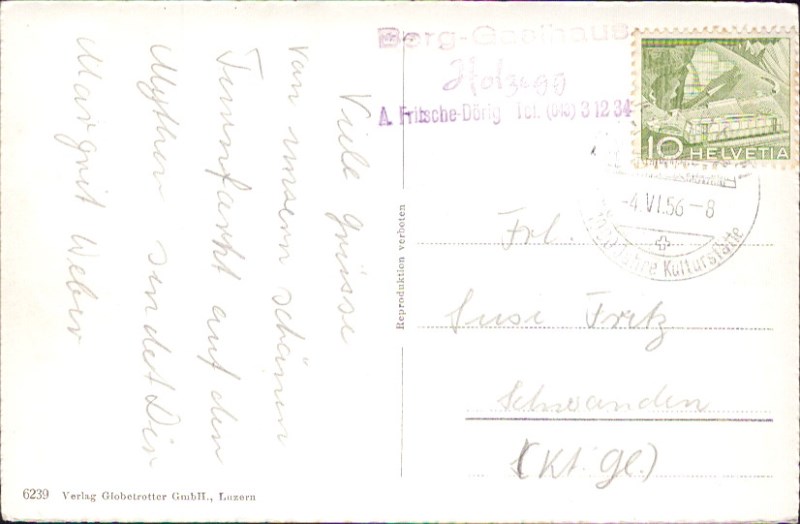 Viele Grüsse
von unserm schönen
Turnfahrt auf den
Mythen sendet Dir
Margrit Weber
Berg-Gasthaus
Holzegg
A. Fritsche-Dörig Tel. (043) 3 12 34
10 HELVETIA
-4.VI.56-8
Jahre Kulturstätte
Reproduktion verboten
Frl.
Susi Fritz
Schwanden
(Kt. Gl.)
6239 Verlag Globetrotter GmbH., Luzern